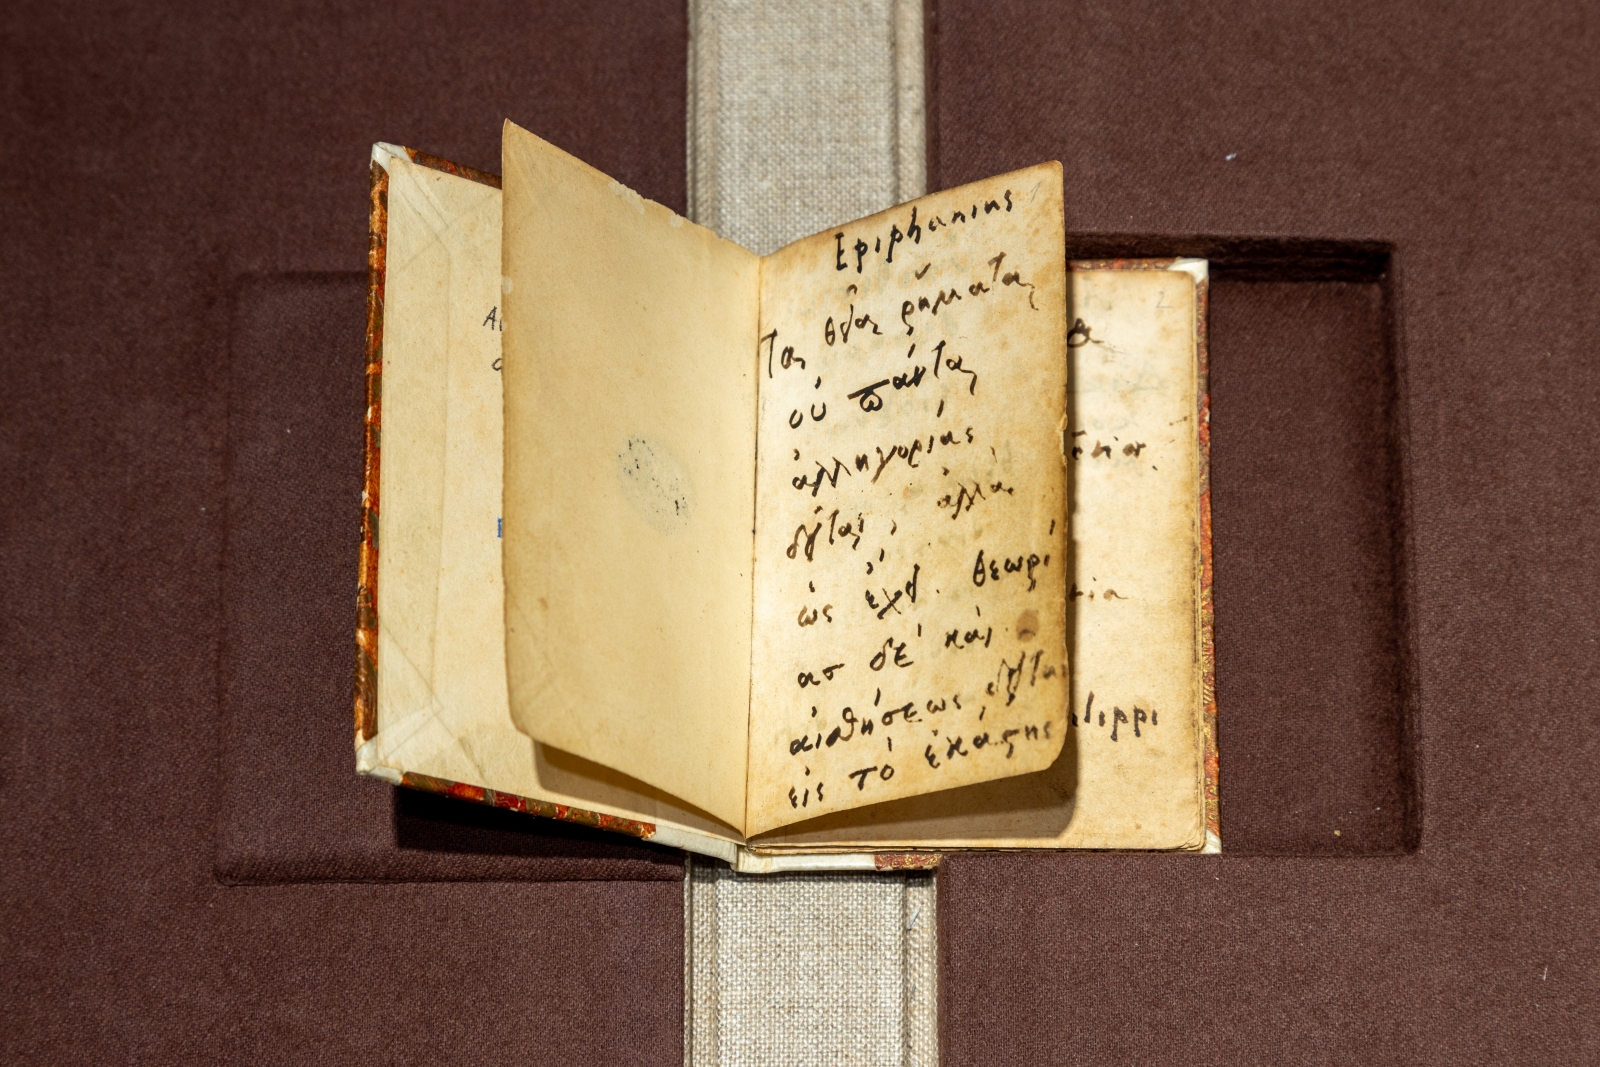 Epiphanius
Τας θείας ρήματας
ού πάντας
ἀλληγορίας
δεῖται, ἀλλὰ
ὡς ἔχει. θεωρί
ασ δὲ καὶ
αἰσθήσεως δεῖται
εἰς τὸ ἑκάστης
2
lippi